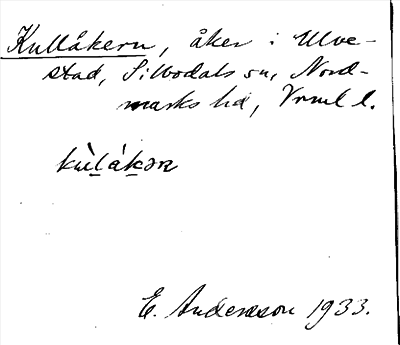 Kullåkern, åker i Ulve-
stad, Silbodals sn, Nord-
marks hd, Vrml l.
kùlåkəṛn
E. Andersson 1933.